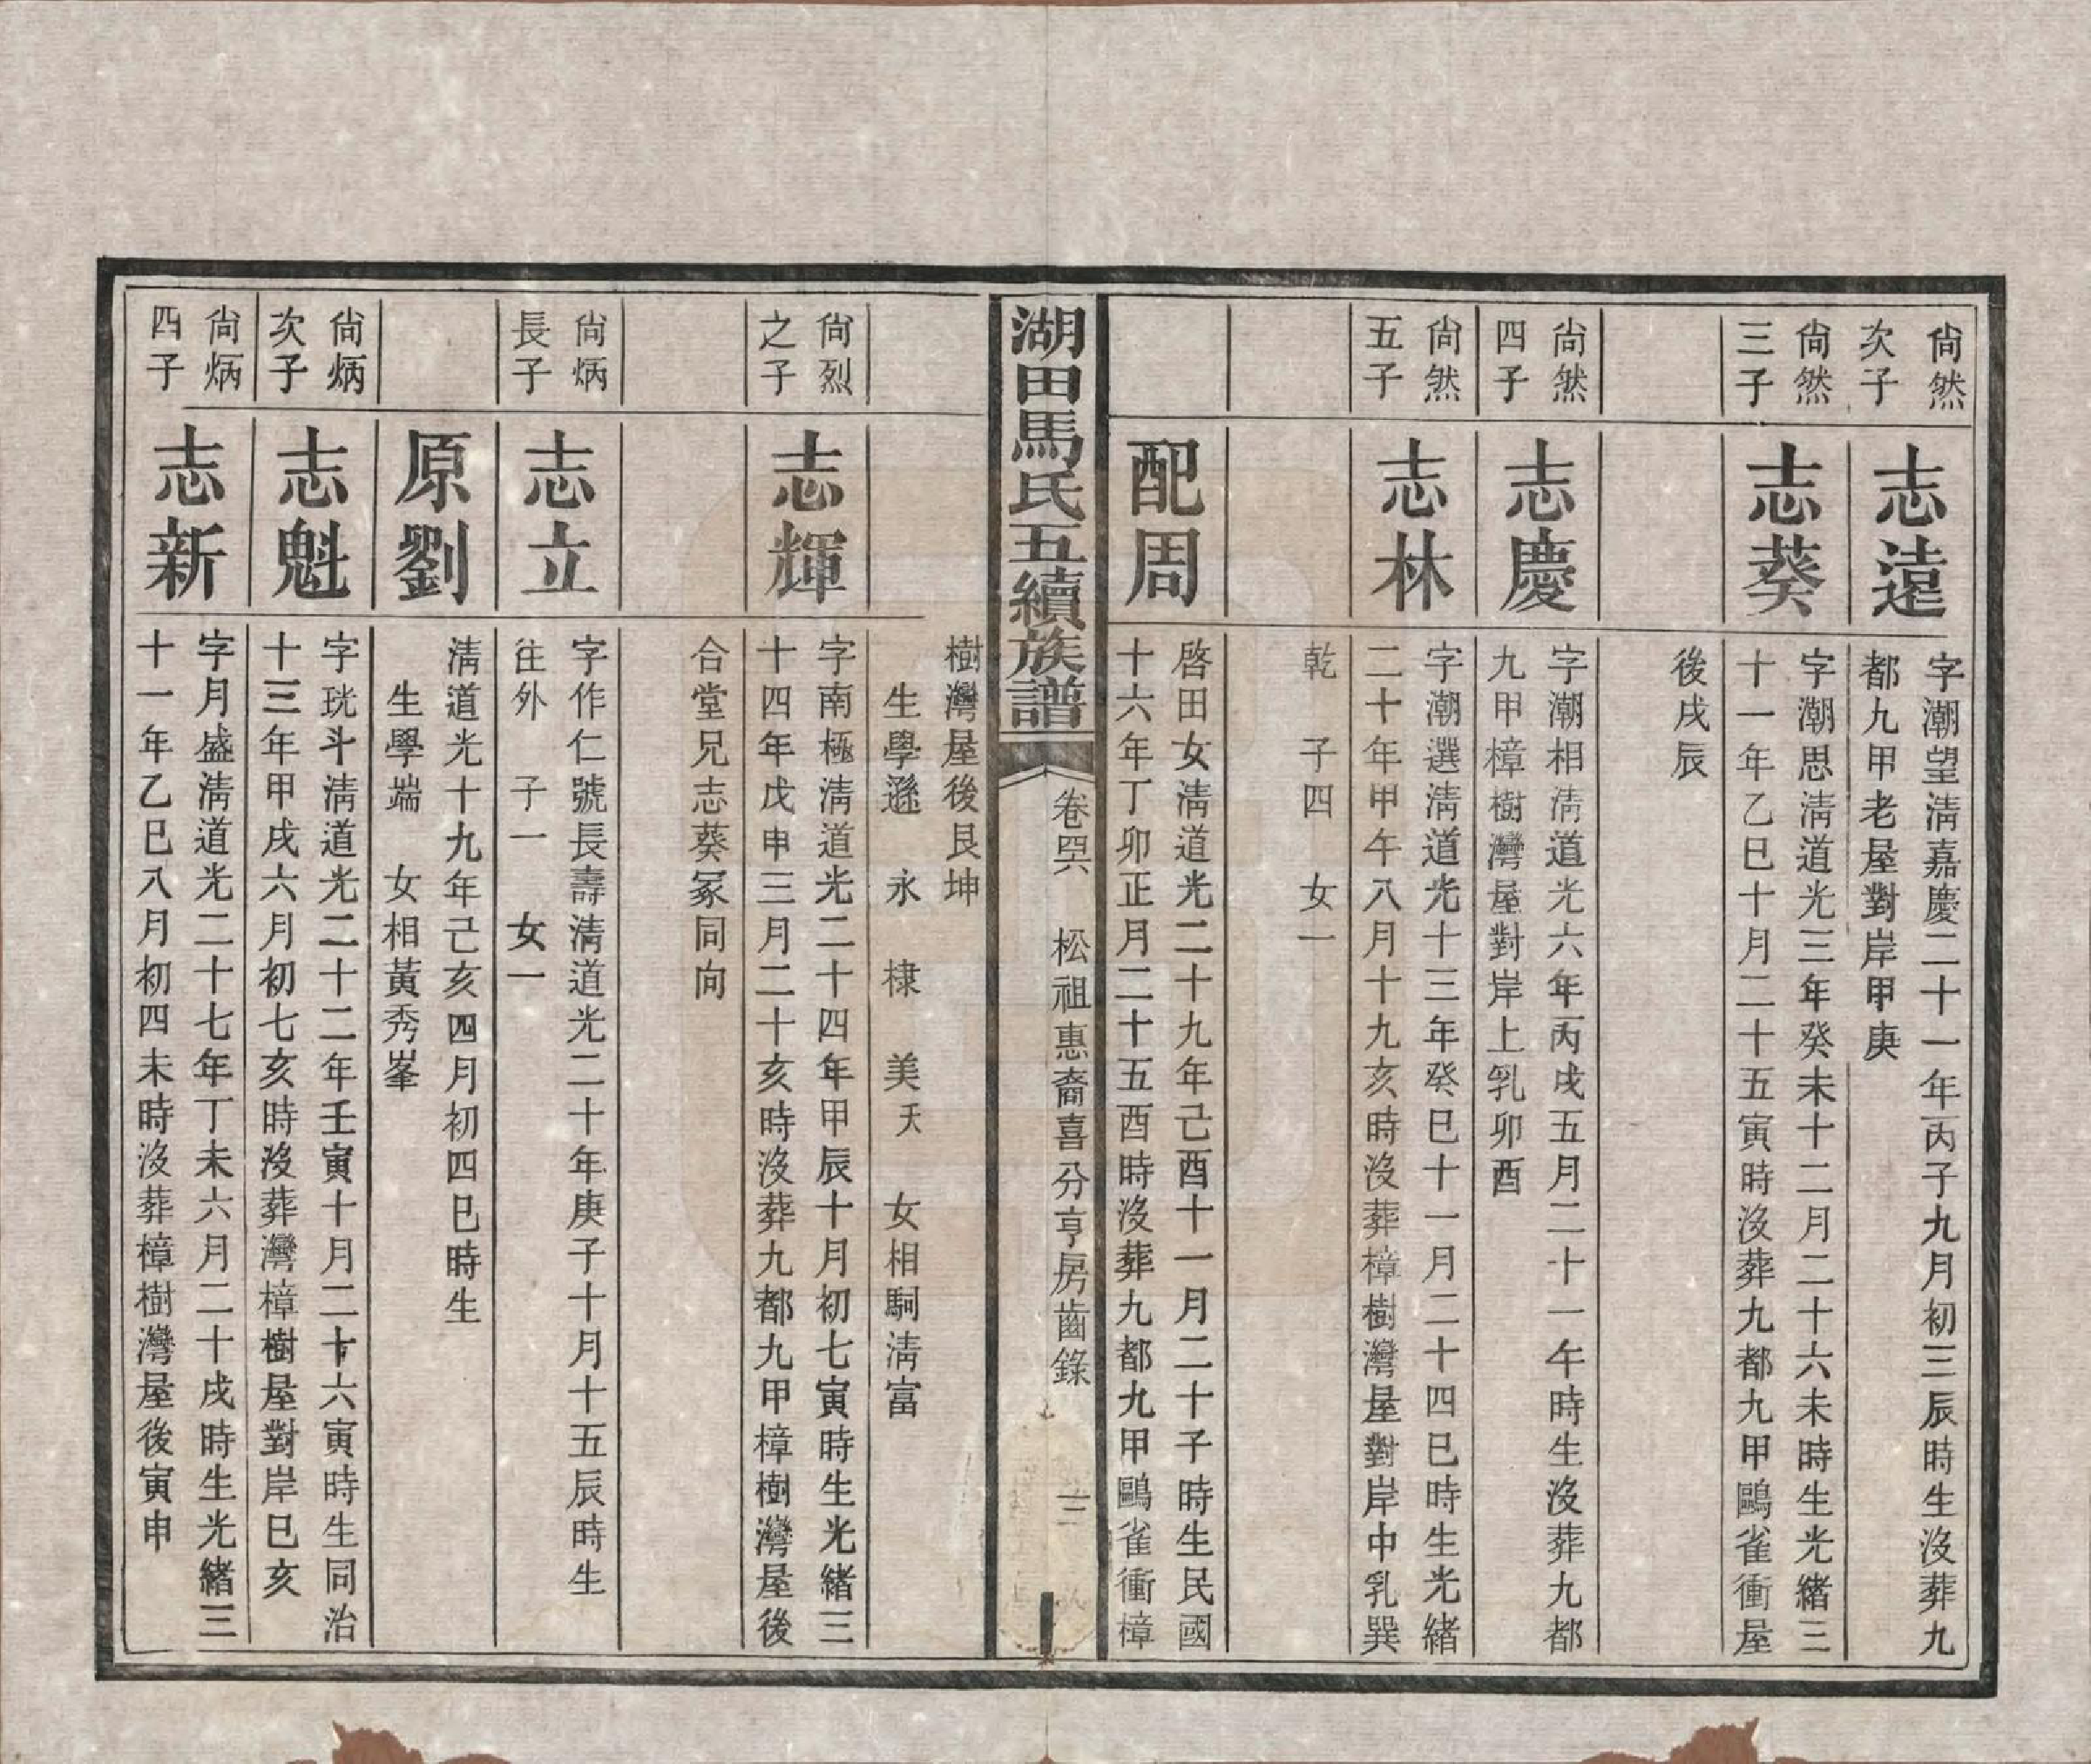 尙然
次子
志遠
字潮望淸嘉慶二十一年丙子九月初三辰時生沒葬九
都九甲老屋對岸甲庚
尙然
三子
志葵
字潮思淸道光三年癸未十二月二十六未時生光緒三
十一年乙巳十月二十五寅時沒葬九都九甲鷗雀衝屋
後戌辰
尙然
四子
志慶
字潮相淸道光六年丙戌五月二十一午時生沒葬九都
九甲樟樹灣屋對岸上乳卯酉
尙然
五子
志林
字潮選淸道光十三年癸巳十一月二十四巳時生光緒
二十年甲午八月十九亥時沒葬樟樹灣屋對岸中乳巽
乾 子四 女一
配周
啓田女淸道光二十九年己酉十一月二十子時生民國
十六年丁卯正月二十五酉時沒葬九都九甲鷗雀衝樟
湖田馬氏五續族譜
卷罡 松祖惠裔喜分亨房齒錄
三
樹灣屋後艮坤
生學遜 永 棣 美夭 女相駉淸富
尙烈
之子
志輝
字南極淸道光二十四年甲辰十月初七寅時生光緒三
十四年戊申三月二十亥時沒葬九都九甲樟樹灣屋後
合堂兄志葵冢同向
尙炳
長子
志立
字作仁號長壽淸道光二十年庚子十月十五辰時生
往外 子一 女一
原劉
淸道光十九年己亥四月初四巳時生
生學端 女相黃秀峯
尙炳
次子
志魁
字珖斗淸道光二十二年壬寅十月二十六寅時生同治
十三年甲戌六月初七亥時沒葬灣樟樹屋對岸巳亥
尙炳
四子
志新
字月盛淸道光二十七年丁未六月二十戌時生光緒三
十一年乙巳八月初四未時沒葬樟樹灣屋後寅申